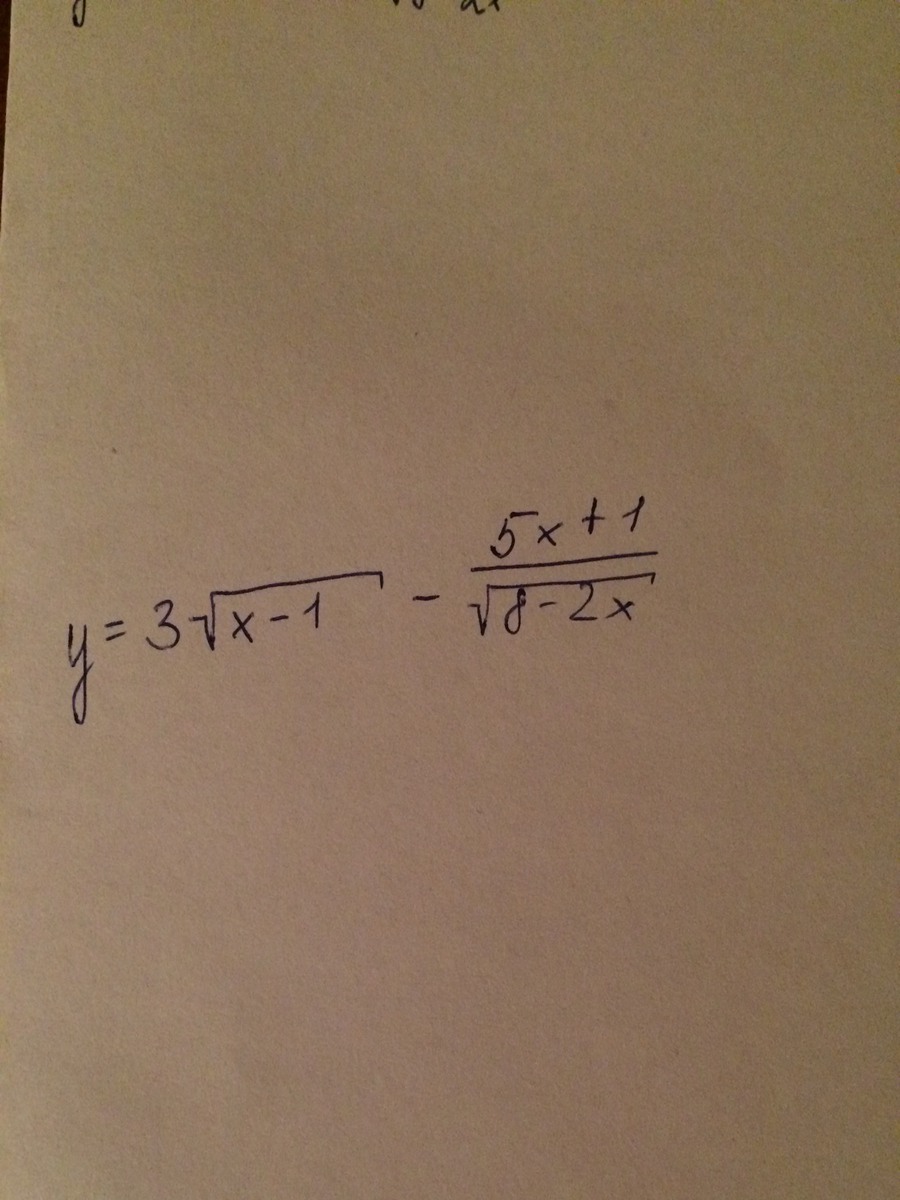 y = 3√(x-1) - (5x+1)/√(8-2x)